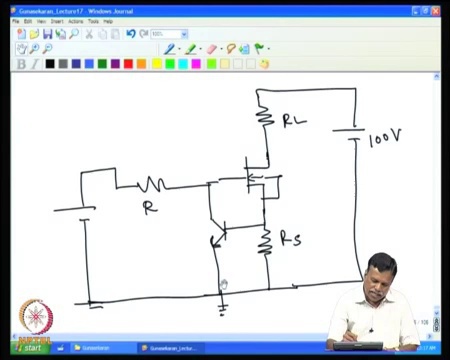 Gunasekaran_Lecture17 - Windows Journal
File Edit View Insert Actions Tools Help
RL
100V
R
RS
start
Gunasekaran
Gunasekaran_Lectu...